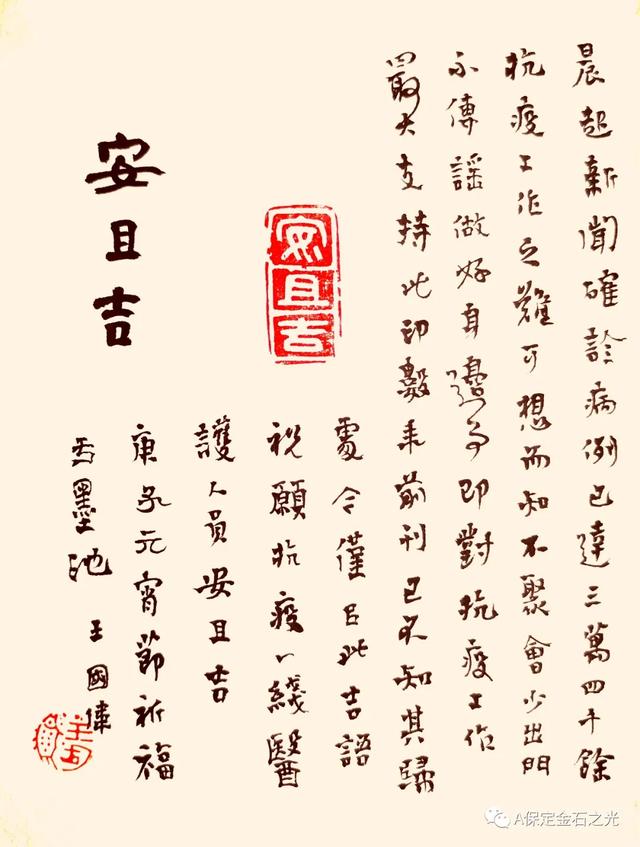 晨起新聞確診病例已達三萬四千餘
抗疫工作之難可想而知不聚會少出門
不傳謠做好身邊事即對抗疫工作
最大支持此印數年前刊已不知其歸
處今僅以此吉語
祝願抗疫一綫醫
護人員安且吉
庚子元宵節祈福
墨池王國偉
安且吉
安且吉
A保定金石之光